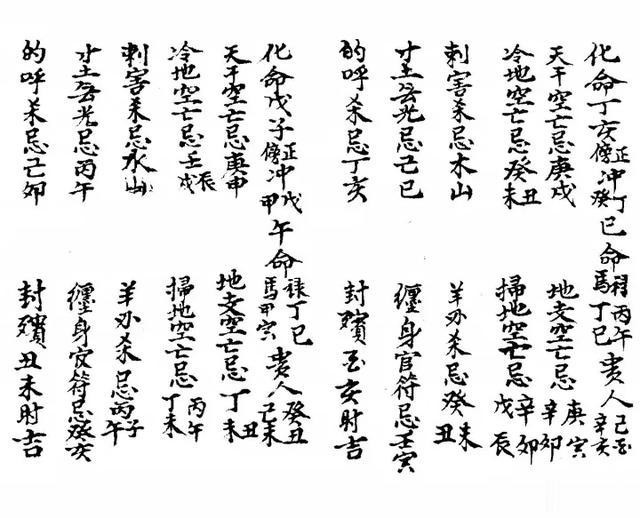 化命丁亥正傍冲丁癸巳命祿丙午馬丁巳貴人己酉辛亥
天干空亡忌庚戌 地支空亡忌庚寅辛卯
冷地空亡忌癸丑未 掃地空亡忌辛卯戊辰
刺害杀忌木山 羊刃杀忌癸丑未
寸土無光忌己巳 纏身官符忌壬寅
的呼杀忌丁亥 封殯酉亥时吉
化命戊子正傍冲戊甲午命祿丁巳馬甲寅貴人癸丑己未
天干空亡忌庚申 地支空亡忌丁丑未
冷地空亡忌壬辰戌 掃地空亡忌丙午丁未
刺害杀忌水山 羊刃杀忌丙子午
寸土無光忌丙午 纏身官符忌癸亥
的呼杀忌己卯 封殯丑未时吉